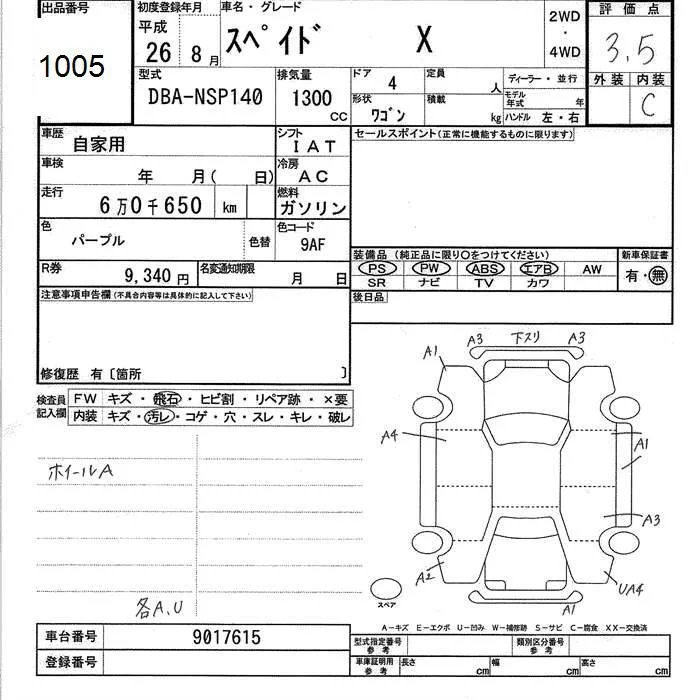 出品番号
1005
初度登録年月
平成
26 8 月
車名・グレード
スペイド X
2WD
・
4WD
評価点
3.5
外装 内装
C
型式
DBA-NSP140
排気量
1300
CC
ドア 4
定員 人
形状 ワゴン
積載 kg
ディーラー・並行
モデル年式 年
ハンドル 左・右
車歴
自家用
シフト
IAT
セールスポイント(正常に機能するものに限ります)
車検
年 月( 日)
冷房
AC
走行
6万0千650 km
燃料
ガソリン
色
パープル
色替
色コード
9AF
装備品 (純正品に限り○をつけてください)
PS PW ABS エアB AW
SR ナビ TV カワ
新車保証書
有・無
R券
9,340 円
名変通知期限
月 日
後日品
注意事項申告欄(不具合内容等は具体的に記入して下さい)
修復歴 有〔箇所 〕
検査員
記入欄
FW キズ・飛石・ヒビ割・リペア跡・×要
内装 キズ・汚レ・コゲ・穴・スレ・キレ・破レ
ホイールA
各A、U
A3 下スリ A3
A1
A4
A1
A3
A2
UA4
A1
スペア
A-キズ E-エクボ U-凹み W-補修跡 S-サビ C-腐食 XX-交換済
車台番号 9017615
登録番号
型式指定番号
参考
類別区分番号
参考
車庫証明用
参考
長さ cm
幅 cm
高さ cm